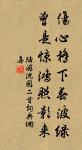 傷心橋下春波綠
曾是驚鴻照影來
陸游沈園二首詞典選
集